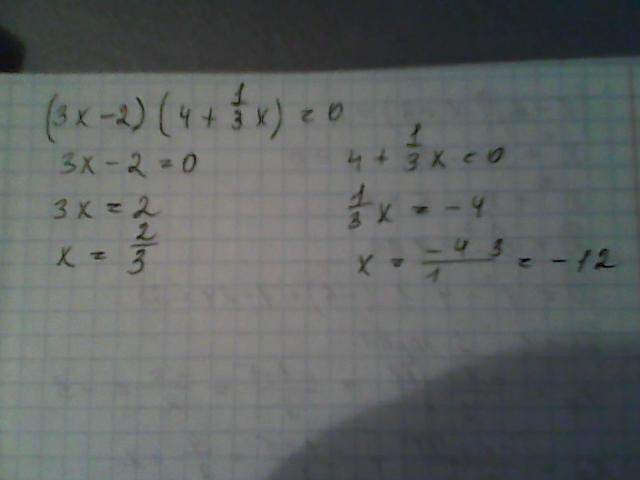 (3x-2)(4+1/3x)=0
3x-2=0
3x=2
x=2/3
4+1/3x=0
1/3x=-4
x=-4 3/1=-12